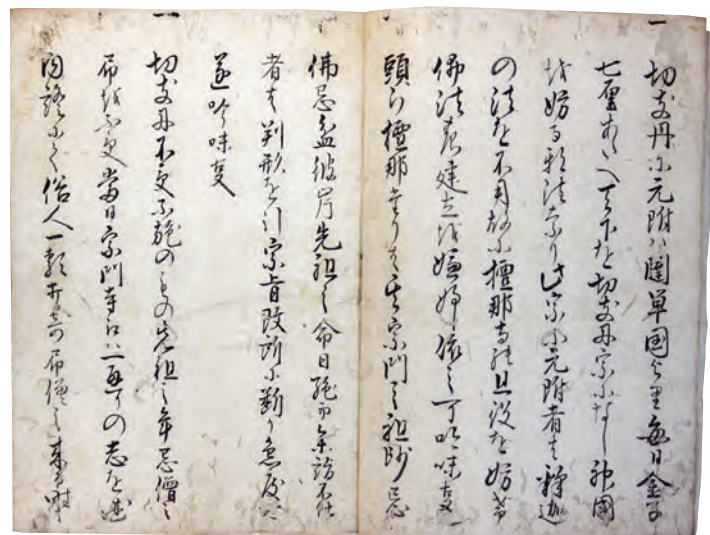 一 切支丹小元附ハ闥単国より毎日金子
七厘あたへ天下を切支丹宗になし神國
を妨る邪法なり此宗に元附者は釋迦
の法を不用故に檀那寺の旦役を妨希
佛法建立を嫌 依之可吟味事
頭り檀那たりとも其宗門之祖師忌
佛忌盆彼岸先祖之命日絶而参詣不仕
者は判形を引宗旨改所に断り急度
遂吟味事
一 切支丹不受不施のもの先祖之年忌僧之
弔を不受當日宗門寺江ハ一通の志を述
内證にて俗人一類打寄弔僧之来る時